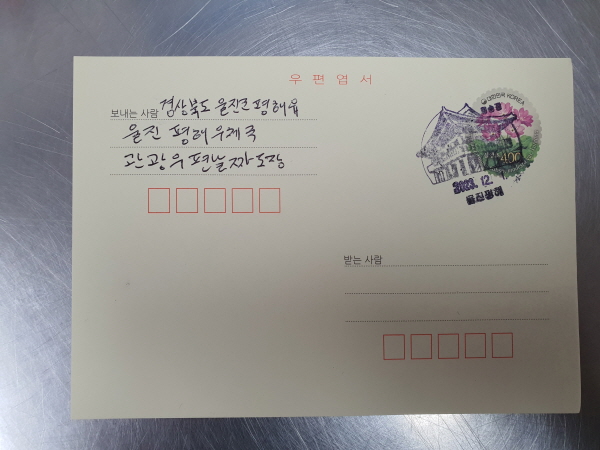 우편엽서
보내는 사람 경상북도 울진군 평해읍
울진 평해우체국
관광우편날짜도장
대한민국 KOREA
월송정
400
2023. 12.
울진평해
받는 사람